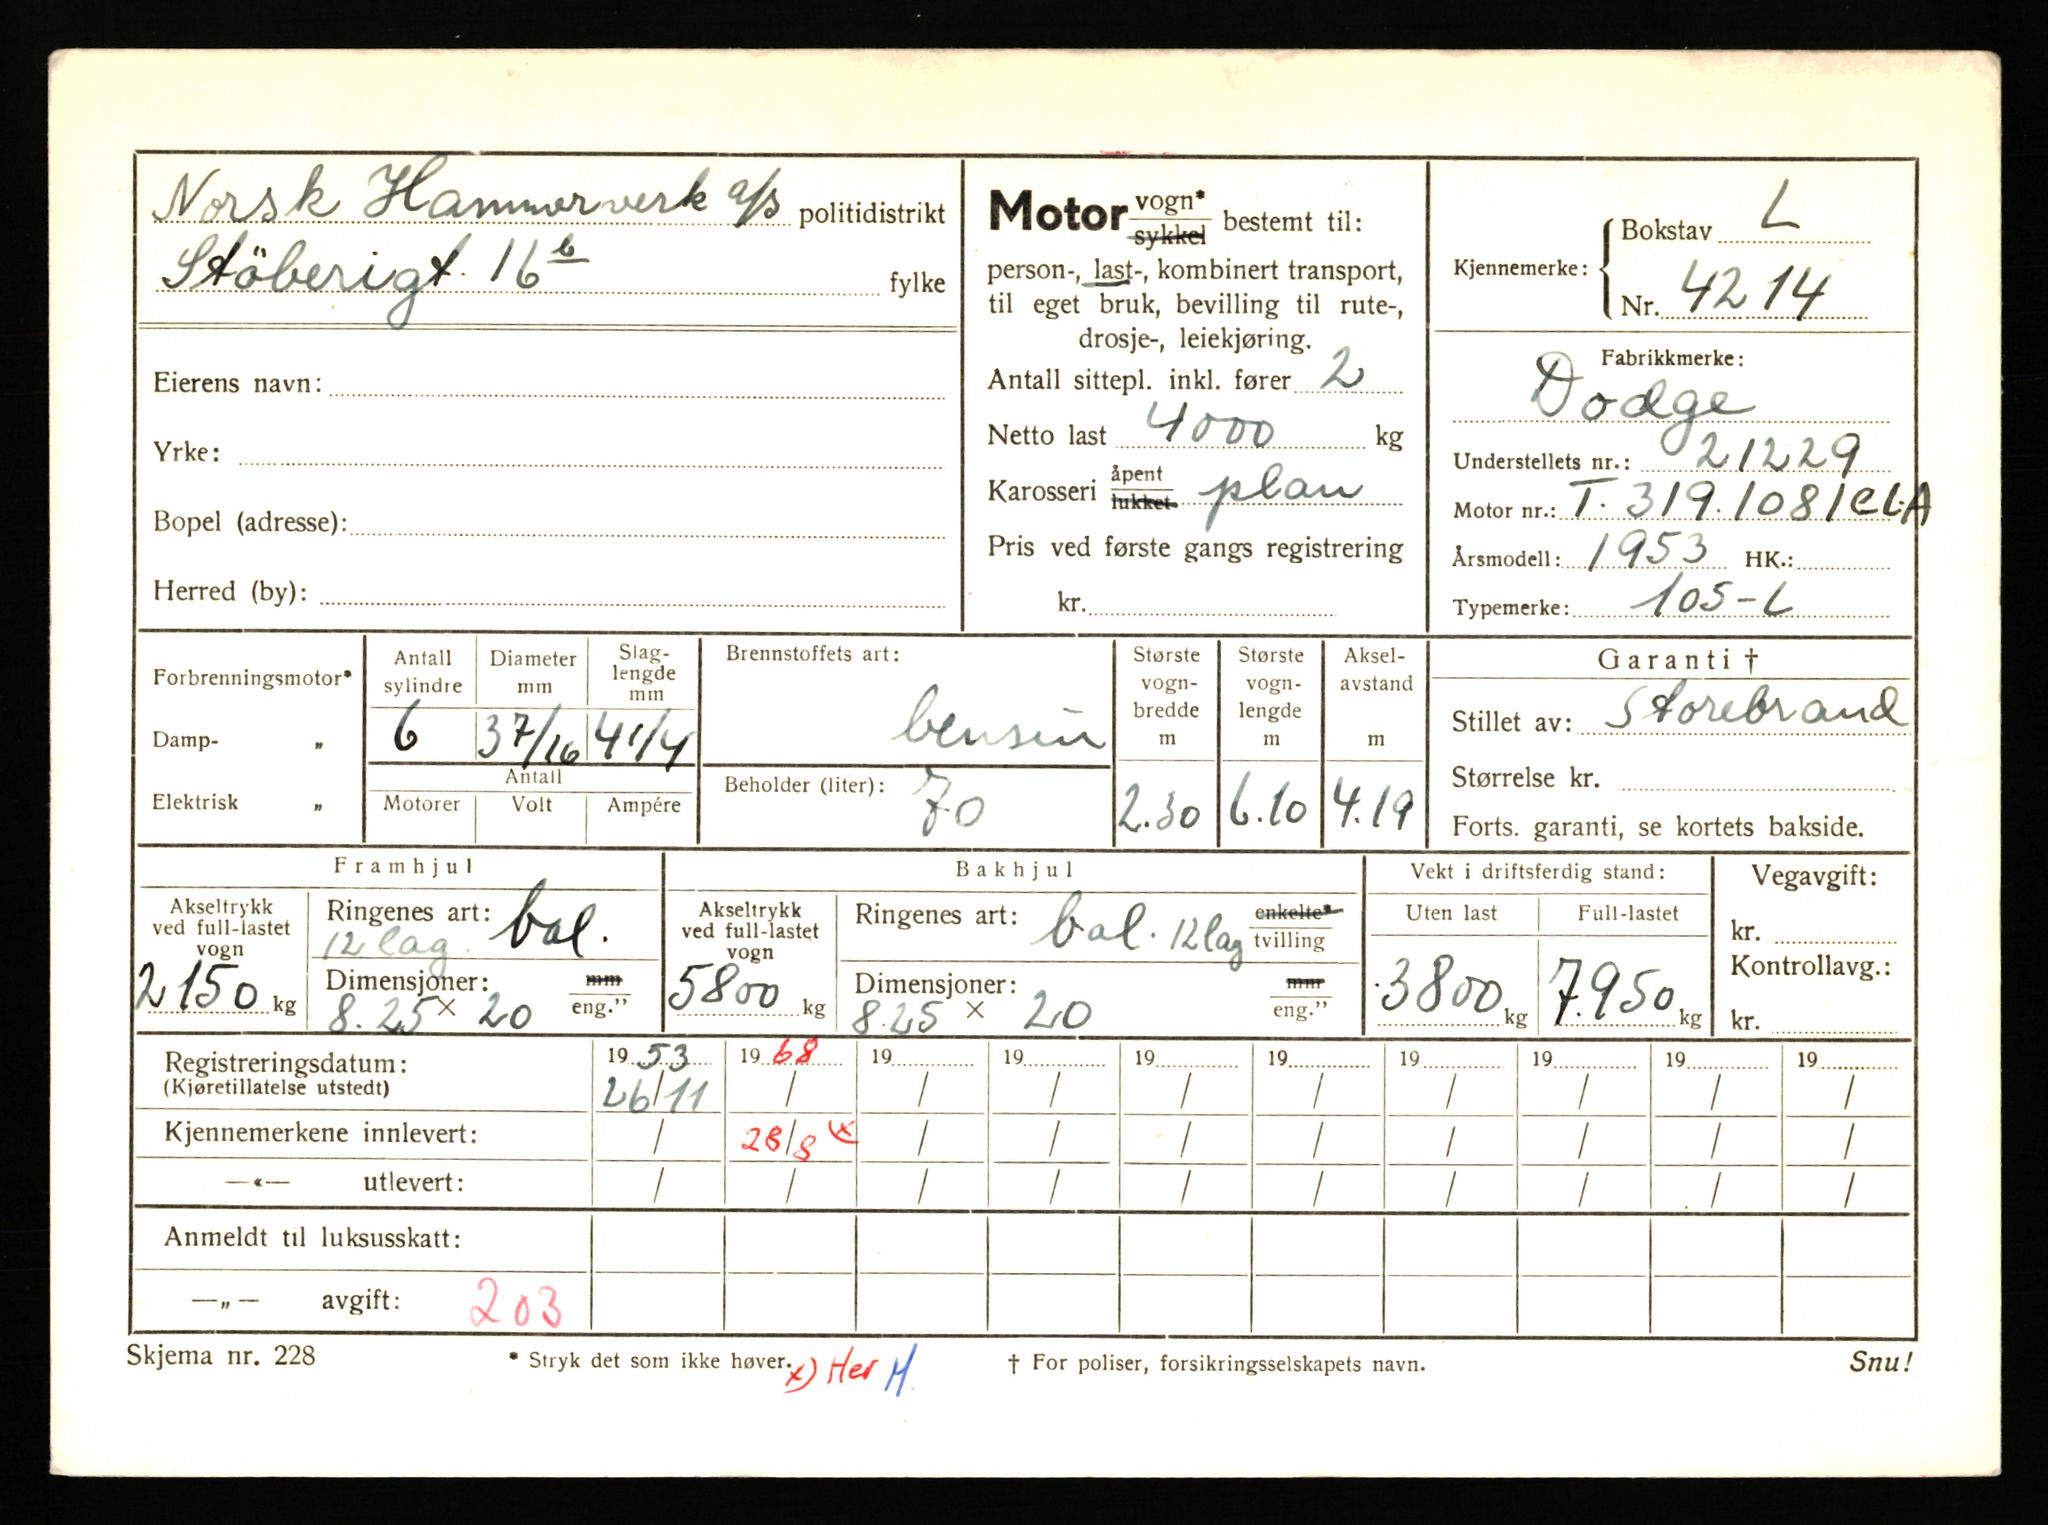 Norsk Hammerverk a/s politidistrikt
Stöberigt. 16 b fylke
Eierens navn:
Yrke:
Bopel (adresse):
Herred (by):
Motor vogn* sykkel bestemt til:
person-, last-, kombinert transport,
til eget bruk, bevilling til rute-,
drosje-, leiekjøring.
Antall sittepl. inkl. fører 2
Netto last 4000 kg
Karosseri åpent lukket plan
Pris ved første gangs registrering
kr.
Kjennemerke: Bokstav L
Nr. 4214
Fabrikkmerke:
Dodge
Understellets nr.: 21229
Motor nr.: T. 319.1081CL.A
Årsmodell: 1953 HK.:
Typemerke: 105-L
Forbrenningsmotor*
Damp- „
Elektrisk „
Antall sylindre
6
Diameter mm
37/16
Slag-lengde mm
41/4
Antall
Motorer Volt Ampére
Brennstoffets art:
bensin
Beholder (liter): 70
Største vogn-bredde m
2.30
Største vogn-lengde m
6.10
Aksel-avstand m
4.19
Garanti †
Stillet av: Storebrand
Størrelse kr.
Forts. garanti, se kortets bakside.
Framhjul
Akseltrykk ved full-lastet vogn
2150 kg
Ringenes art: bal.
12 lag.
Dimensjoner: mm
8.25 x 20 eng.”
Bakhjul
Akseltrykk ved full-lastet vogn
5800 kg
Ringenes art: bal. 12 lag enkelte* tvilling
Dimensjoner: mm
8.25 x 20 eng.”
Vekt i driftsferdig stand:
Uten last Full-lastet
3800 kg 7.950 kg
Vegavgift:
kr.
Kontrollavg.:
kr.
Registreringsdatum: 19 53 19 68 19 19 19 19 19 19 19 19
(Kjøretillatelse utstedt) 26/11 / / / / / / / / /
Kjennemerkene innlevert: / 28/8 x) / / / / / / / /
—«— utlevert: / / / / / / / / / /
Anmeldt til luksusskatt:
—„— avgift: 203
Skjema nr. 228 * Stryk det som ikke høver. x) Her H † For poliser, forsikringsselskapets navn. Snu!